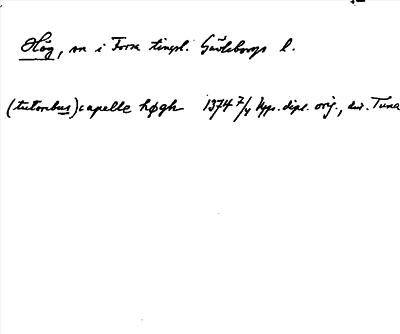 Hög, sn i Forsa tingsl. Gävleborgs l.
(tutoribus) capelle høgh 1374 7/4 Upps. dipl. orig., avr. Tuna